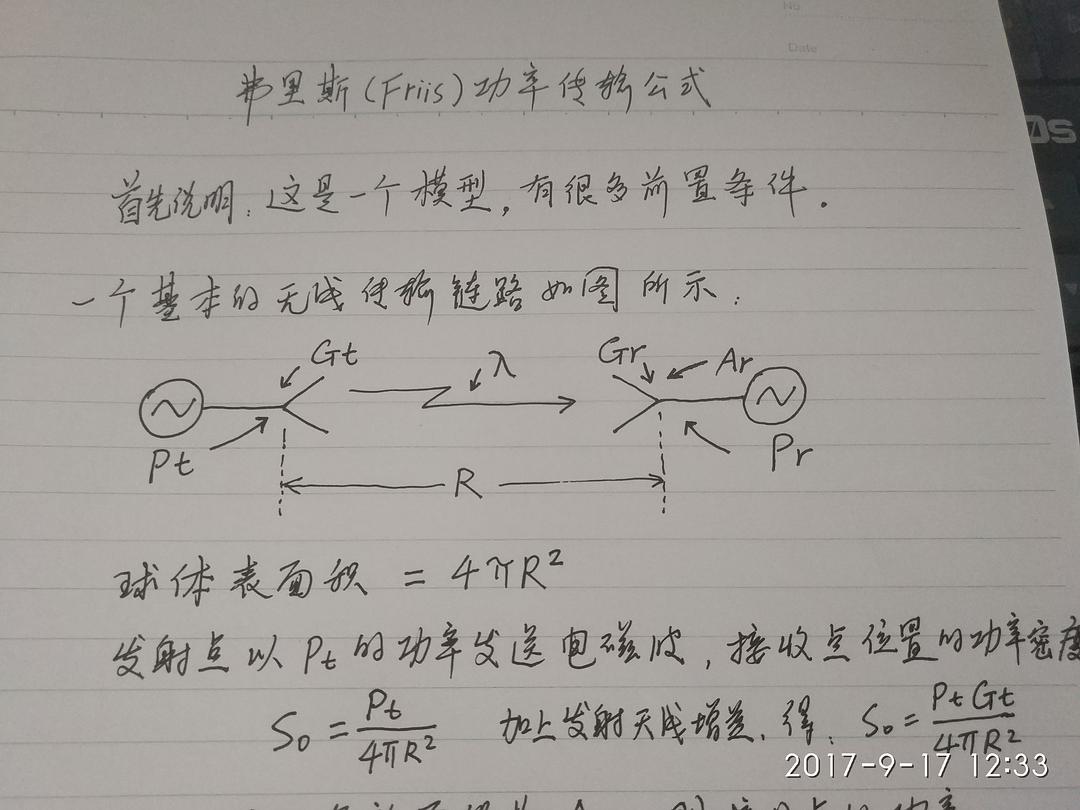 No
Date
弗里斯(Friis)功率传输公式
首先说明:这是一个模型,有很多前置条件.
一个基本的无线传输链路如图所示:
Gt λ Gr Ar
Pt R Pr
球体表面积 = 4πR²
发射点以Pt的功率发送电磁波,接收点位置的功率密度
S₀ = Pt/4πR² 加上发射天线增益,得: S₀ = PtGt/4πR²
2017-9-17 12:33